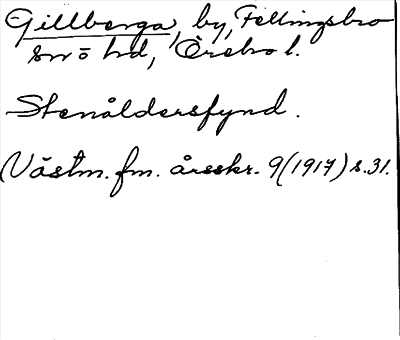 Gillberga, by, Fellingsbro
sn ö hd, Örebro l.
Stenåldersfynd.
Västm. fm. årsskr. 9 (1917) s. 31.